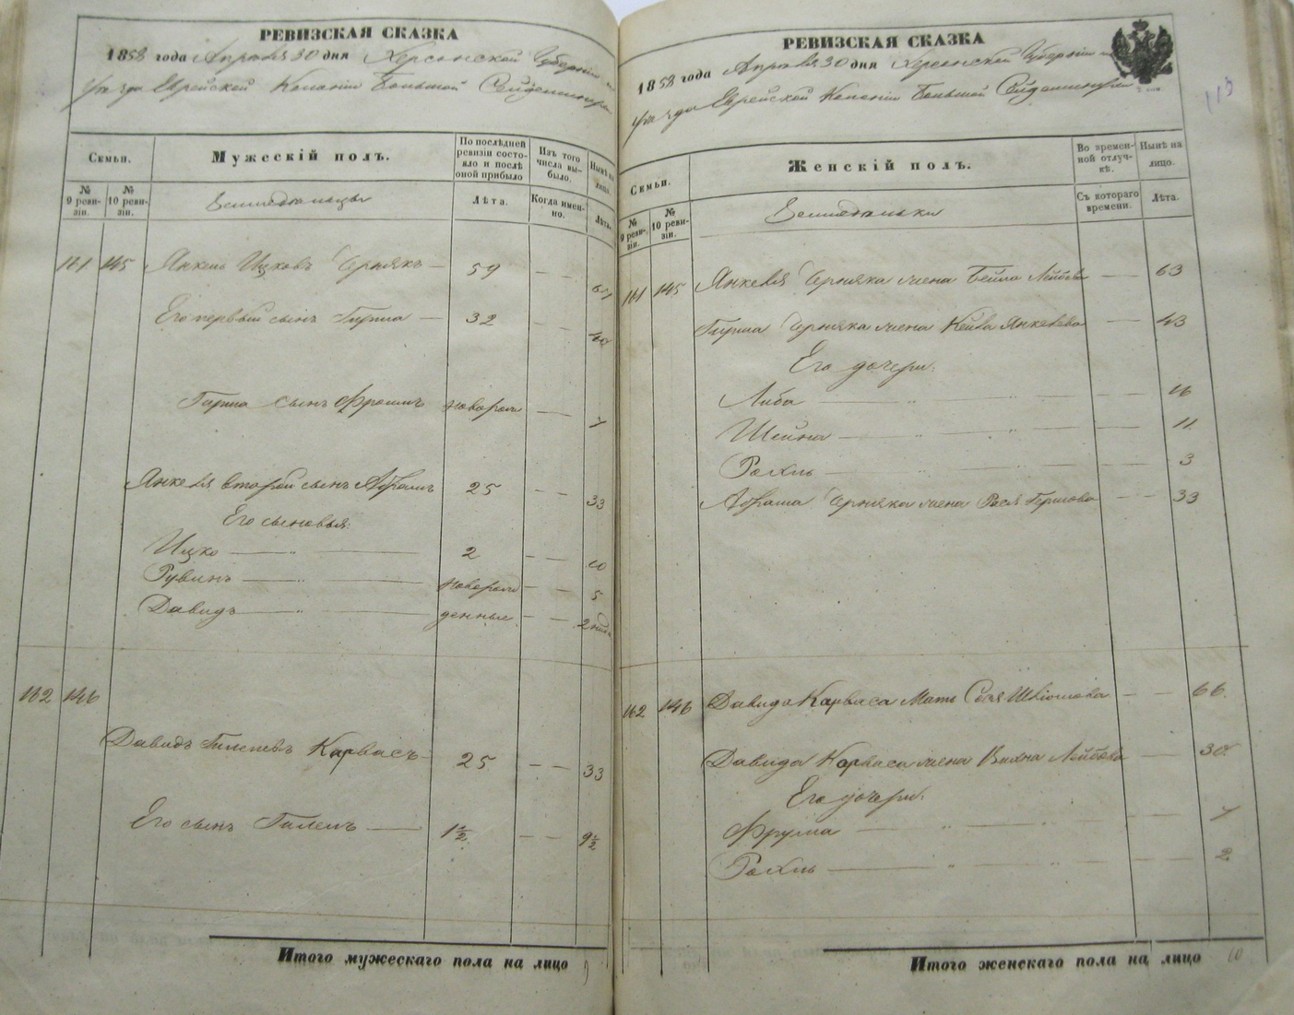 РЕВИЗСКАЯ СКАЗКА
1858 года Апреля 30 дня Херсонской Губерніи
уѣзда Еврейской Колоніи Большой Сейдеминухи
Семьи.
Мужескій полъ.
По послѣдней ревизіи состояло и послѣ оной прибыло
Изъ того числа выбыло.
Нынѣ на лицо.
№ 9 ревизіи.
№ 10 ревизіи.
Лѣта.
Когда именно.
Лѣта.
161 145 Янкель Ицковъ Чернякъ 59 67
Его первый сынъ Гирша 32 40
Гирша сынъ Фроимъ новорож 7
Янкеля второй сынъ Абрамъ 25 33
Его сыновья:
Ицко 2 10
Рувинъ новорож 5
Давидъ денные 2
162 146
Давидъ Гилелевъ Карвасъ 25 33
Его сынъ Гилель 1½ 9½
Итого мужескаго пола на лицо 9
РЕВИЗСКАЯ СКАЗКА
1858 года Апреля 30 дня Херсонской Губерніи
уѣзда Еврейской Колоніи Большой Сейдеминухи
113
Семьи.
Женскій полъ.
Во временной отлучкѣ.
Нынѣ на лицо.
№ 9 ревизіи.
№ 10 ревизіи.
Съ котораго времени.
Лѣта.
161 145 Янкеля Черняка жена Бейла Лейбова 63
Гирша Черняка жена Янкелева 43
Его дочери:
Либа 16
Шейна 11
Рохль 3
Абрама Черняка жена Рося Гершова 33
162 146 Давида Карваса Мать 66
Давида Карваса жена Лейбова 30
Его дочери:
Фрума 7
Рохль 2
Итого женскаго пола на лицо 10